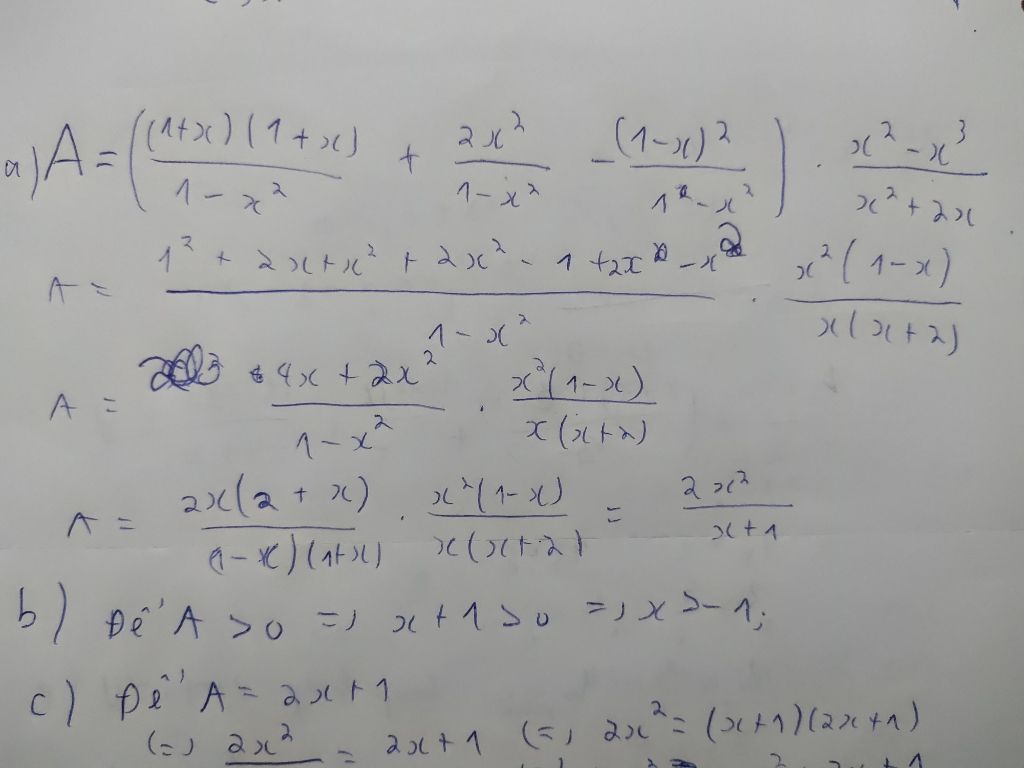 a) A = ( (1+x)(1+x) / 1-x² + 2x² / 1-x² - (1-x)² / 1²-x² ) . x²-x³ / x²+2x
A = 1²+2x+x²+2x²-1+2x-x² / 1-x² . x²(1-x) / x(x+2)
A = 4x+2x² / 1-x² . x²(1-x) / x(x+2)
A = 2x(2+x) / (1-x)(1+x) . x²(1-x) / x(x+2) = 2x² / x+1
b) Để A >0 => x+1>0 => x>-1;
c) Để A = 2x+1
(=) 2x² = 2x+1 (=) 2x² = (x+1)(2x+1)